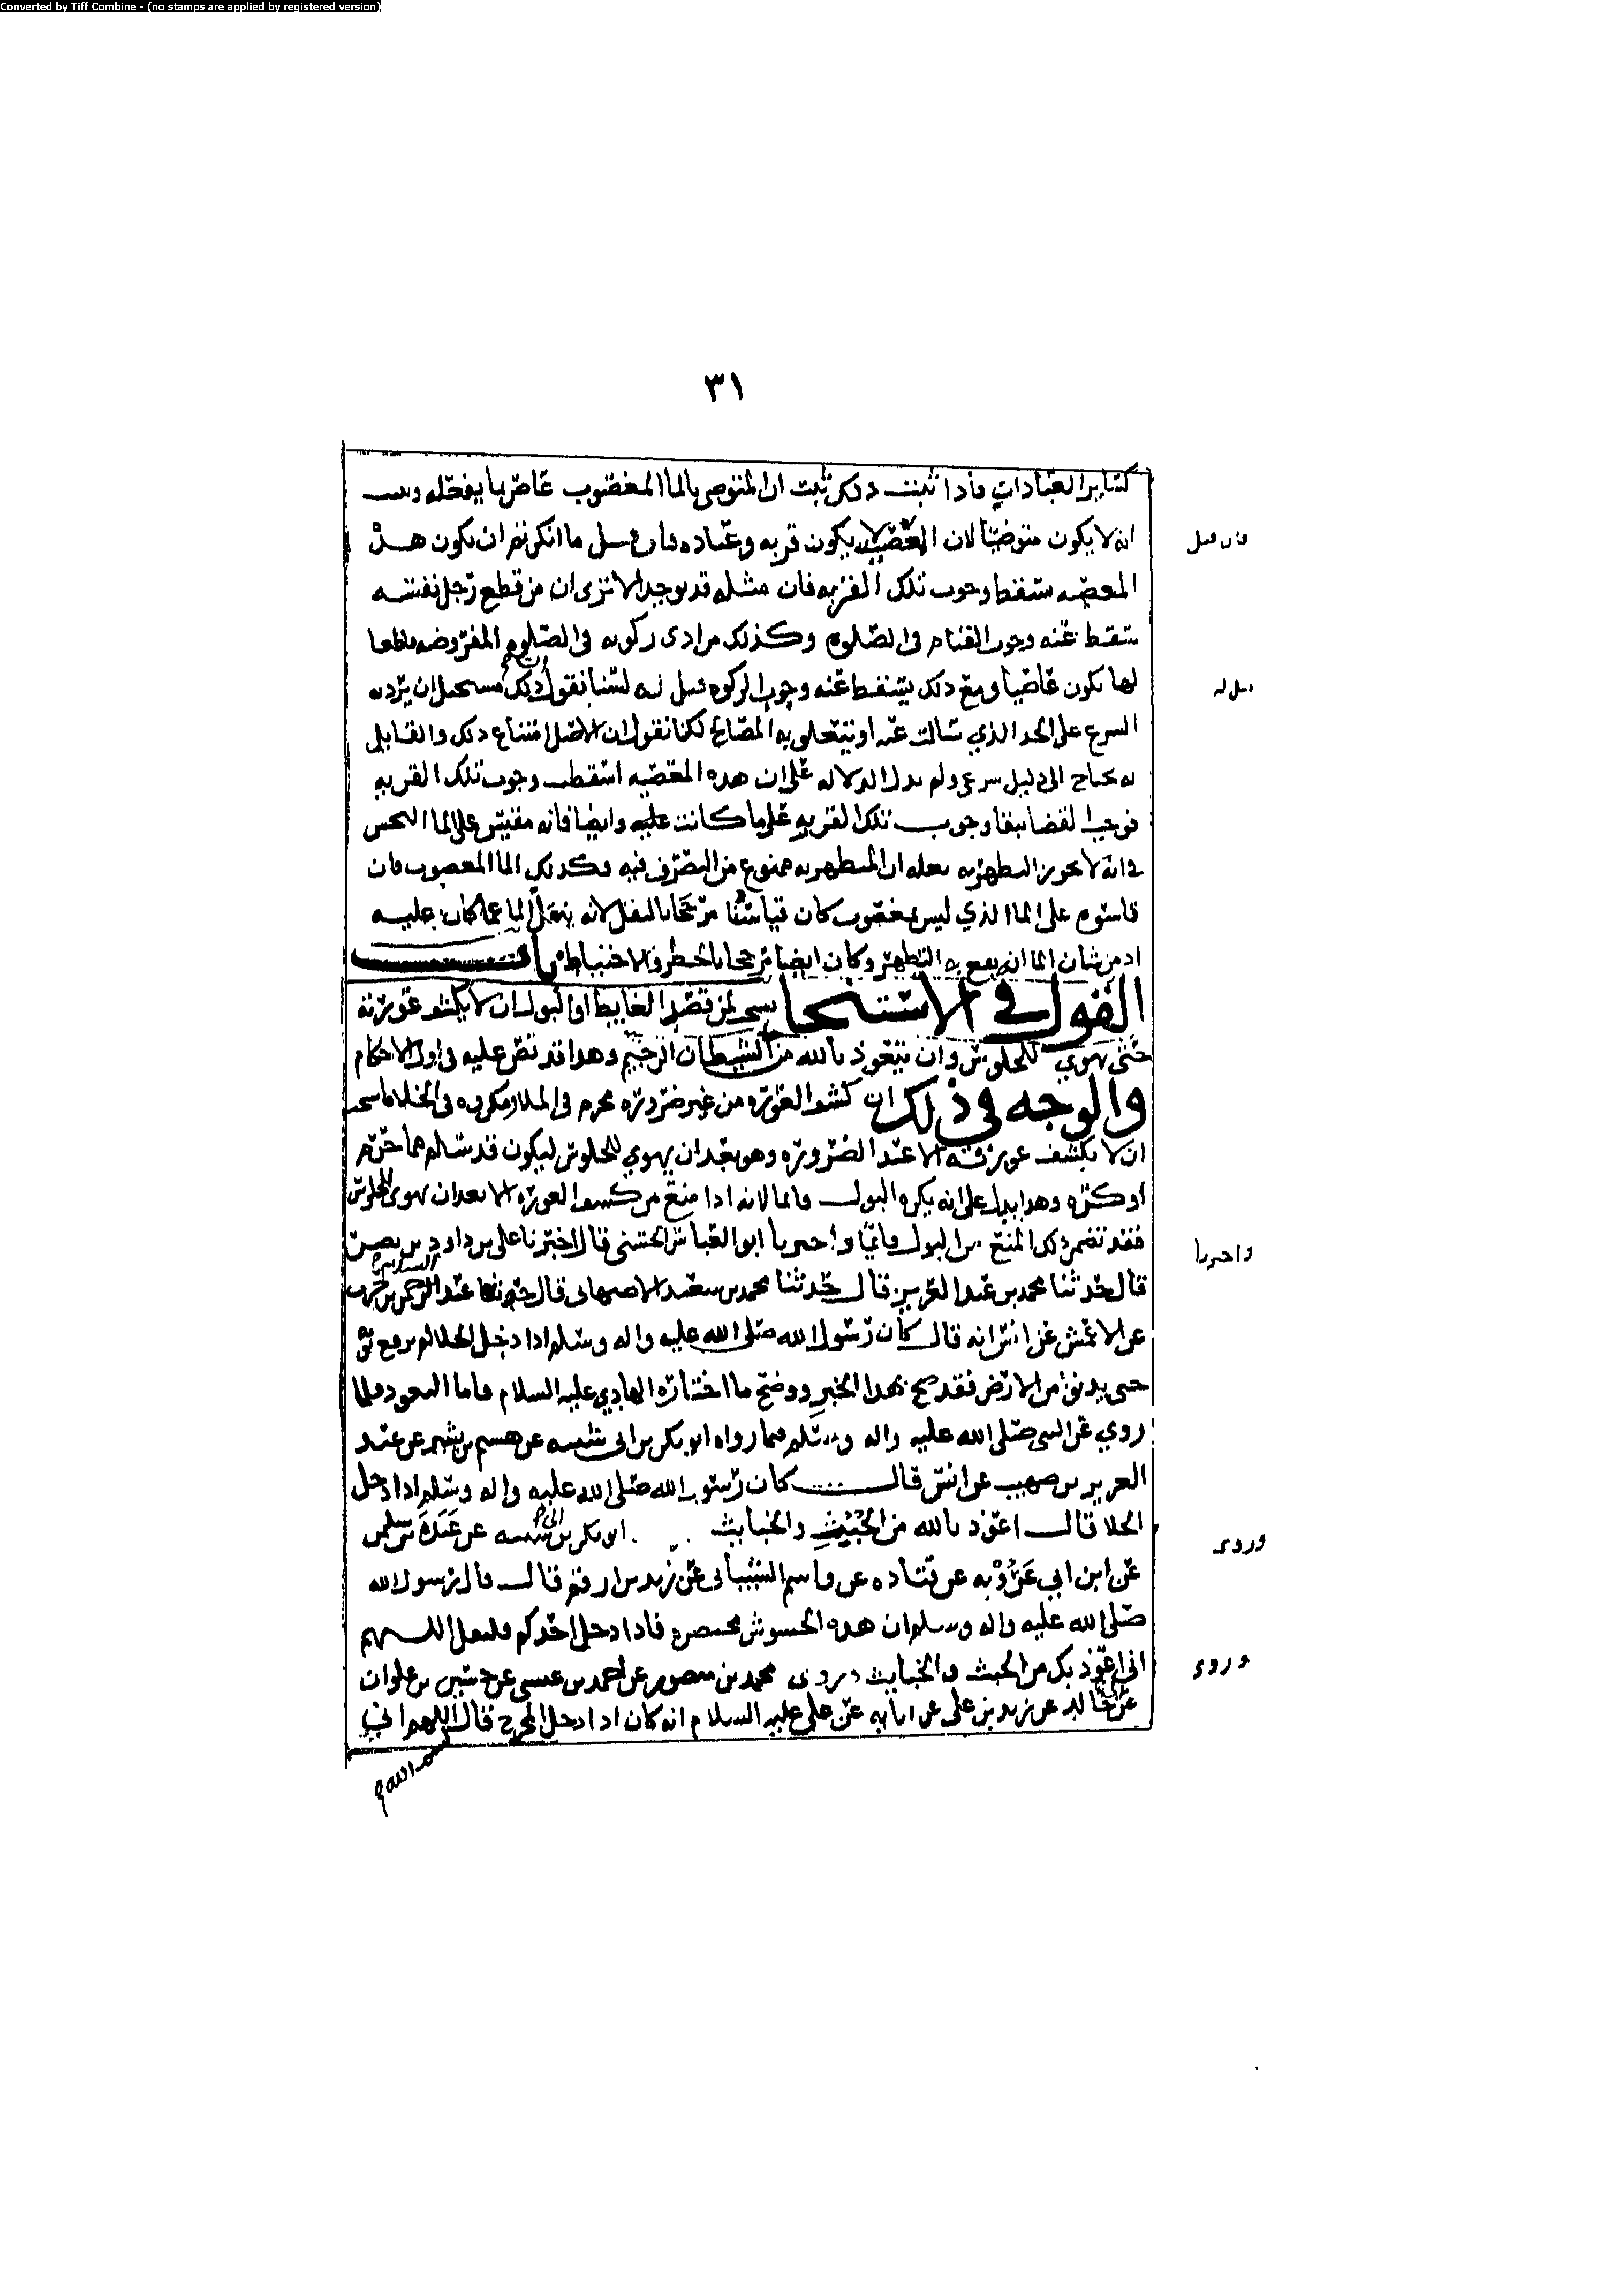 Converted by Tiff Combine - (no stamps are applied by registered version)
٣١
كسائر العبادات فإذا ثبت ذلك ثبت ان المتوضي بالما المغضوب عاص بما يفعله وثبت
انه لا يكون متوضيا لان المعصية لا يكون قربه وعباده فان قيل ما انكرتم ان تكون هذه
فان قيل
المعصيه سقط وجوب تلك القربه فان مثله قد يوجد الا ترى ان من قطع رجل نفسه
سقط عنه وجوب القيام في الصلوه وكذلك من ادى زكوته في الصلوه المفروضه قاطعا
لها يكون عاصيا ومع ذلك يسقط عنه وجوب الزكوه قيل له لسنا نقول ان ذلك مستحيل ان يرد به
قيل له
السرع على الحد الذي سالت عنه او يتعلق به المصالح لكنا نقول ان الاصل امتناع ذلك والقايل
به يحتاج الى دليل سرعي ولم يدل الدلاله على ان هذه المعصيه اسقطت وجوب تلك القربه
فوجب القضا ببقا وجوب تلك القربه على ما كانت عليه وايضا فانه مقيس على الما النجس
في انه لا يجوز التطهر به بعله ان المتطهر به ممنوع من التصرف فيه وكذلك الما المعصوب فان
قاسوه على الما الذي ليس بمغصوب كان قياسنا مرجحا بالنقل لانه ينقل الما عما كان عليه
اذ من شان الما ان يقع به التطهر وكان ايضا مرجحا بالحظر والاحتياط باب
القول في الاستنجا يستحب لمن قصد الغايط او البول ان لا يكشف عورته
حتى يهوي للجلوس وان يتعوذ بالله من الشيطان الرجيم وهذا قد نص عليه في اول الاحكام
والوجه في ذلك ان كشف العورة من غير ضرورة محرم في الملا ومكروه في الخلا فاستحب
ان لا يكشف عورته الا عند الضروره وهو بعد ان يهوي للجلوس ليكون قد سالم مما حرم
او كره وهذا يدل على انه يكره البول قايما لانه اذا منع من كشف العوره الا بعد ان يهوى للجلوس
فقد تضمن ذلك المنع من البول قايما واخبرنا ابو العباس الحسني قال اخبرنا علي بن داود بن نصر
واخبرنا
قال حدثنا محمد بن عبد العزيز قال حدثنا محمد بن سعيد الاصبهاني قال حدثنا عبد السلام بن حرب
عن الاعمش عن انس انه قال كان رسول الله صلى الله عليه واله وسلم اذا دخل الخلا لم يرفع ثوبه
حتى يدنوا من الارض فقد صح بهذا الخبر ووضح ما اختاره الهادي عليه السلام فاما التعوذ فلما
روي عن النبي صلى الله عليه واله وسلم فيما رواه ابو بكر بن ابي شيبه عن هشيم بن بشير عن عبد
العزيز بن صهيب عن انس قال كان رسول الله صلى الله عليه واله وسلم اذا دخل
الخلا قال اعوذ بالله من الخبث والخبايث ابو بكر بن ابي شيبه عن عبدة بن سليمن
وروى
عن ابن ابي عروبه عن قتاده عن قاسم الشيباني عن زيد بن ارقم قال قال رسول الله
صلى الله عليه واله وسلم ان هذه الحشوش محتضره فاذا دخل احدكم فليقل اللهم
اني اعوذ بك من الخبث والخبايث وروى محمد بن منصور عن احمد بن عيسى عن حسين بن علوان
وروى
عن ابي خالد عن زيد بن علي عن ابايه عن علي عليه السلام انه كان اذا دخل المخرج قال اللهم اني
بسم الله